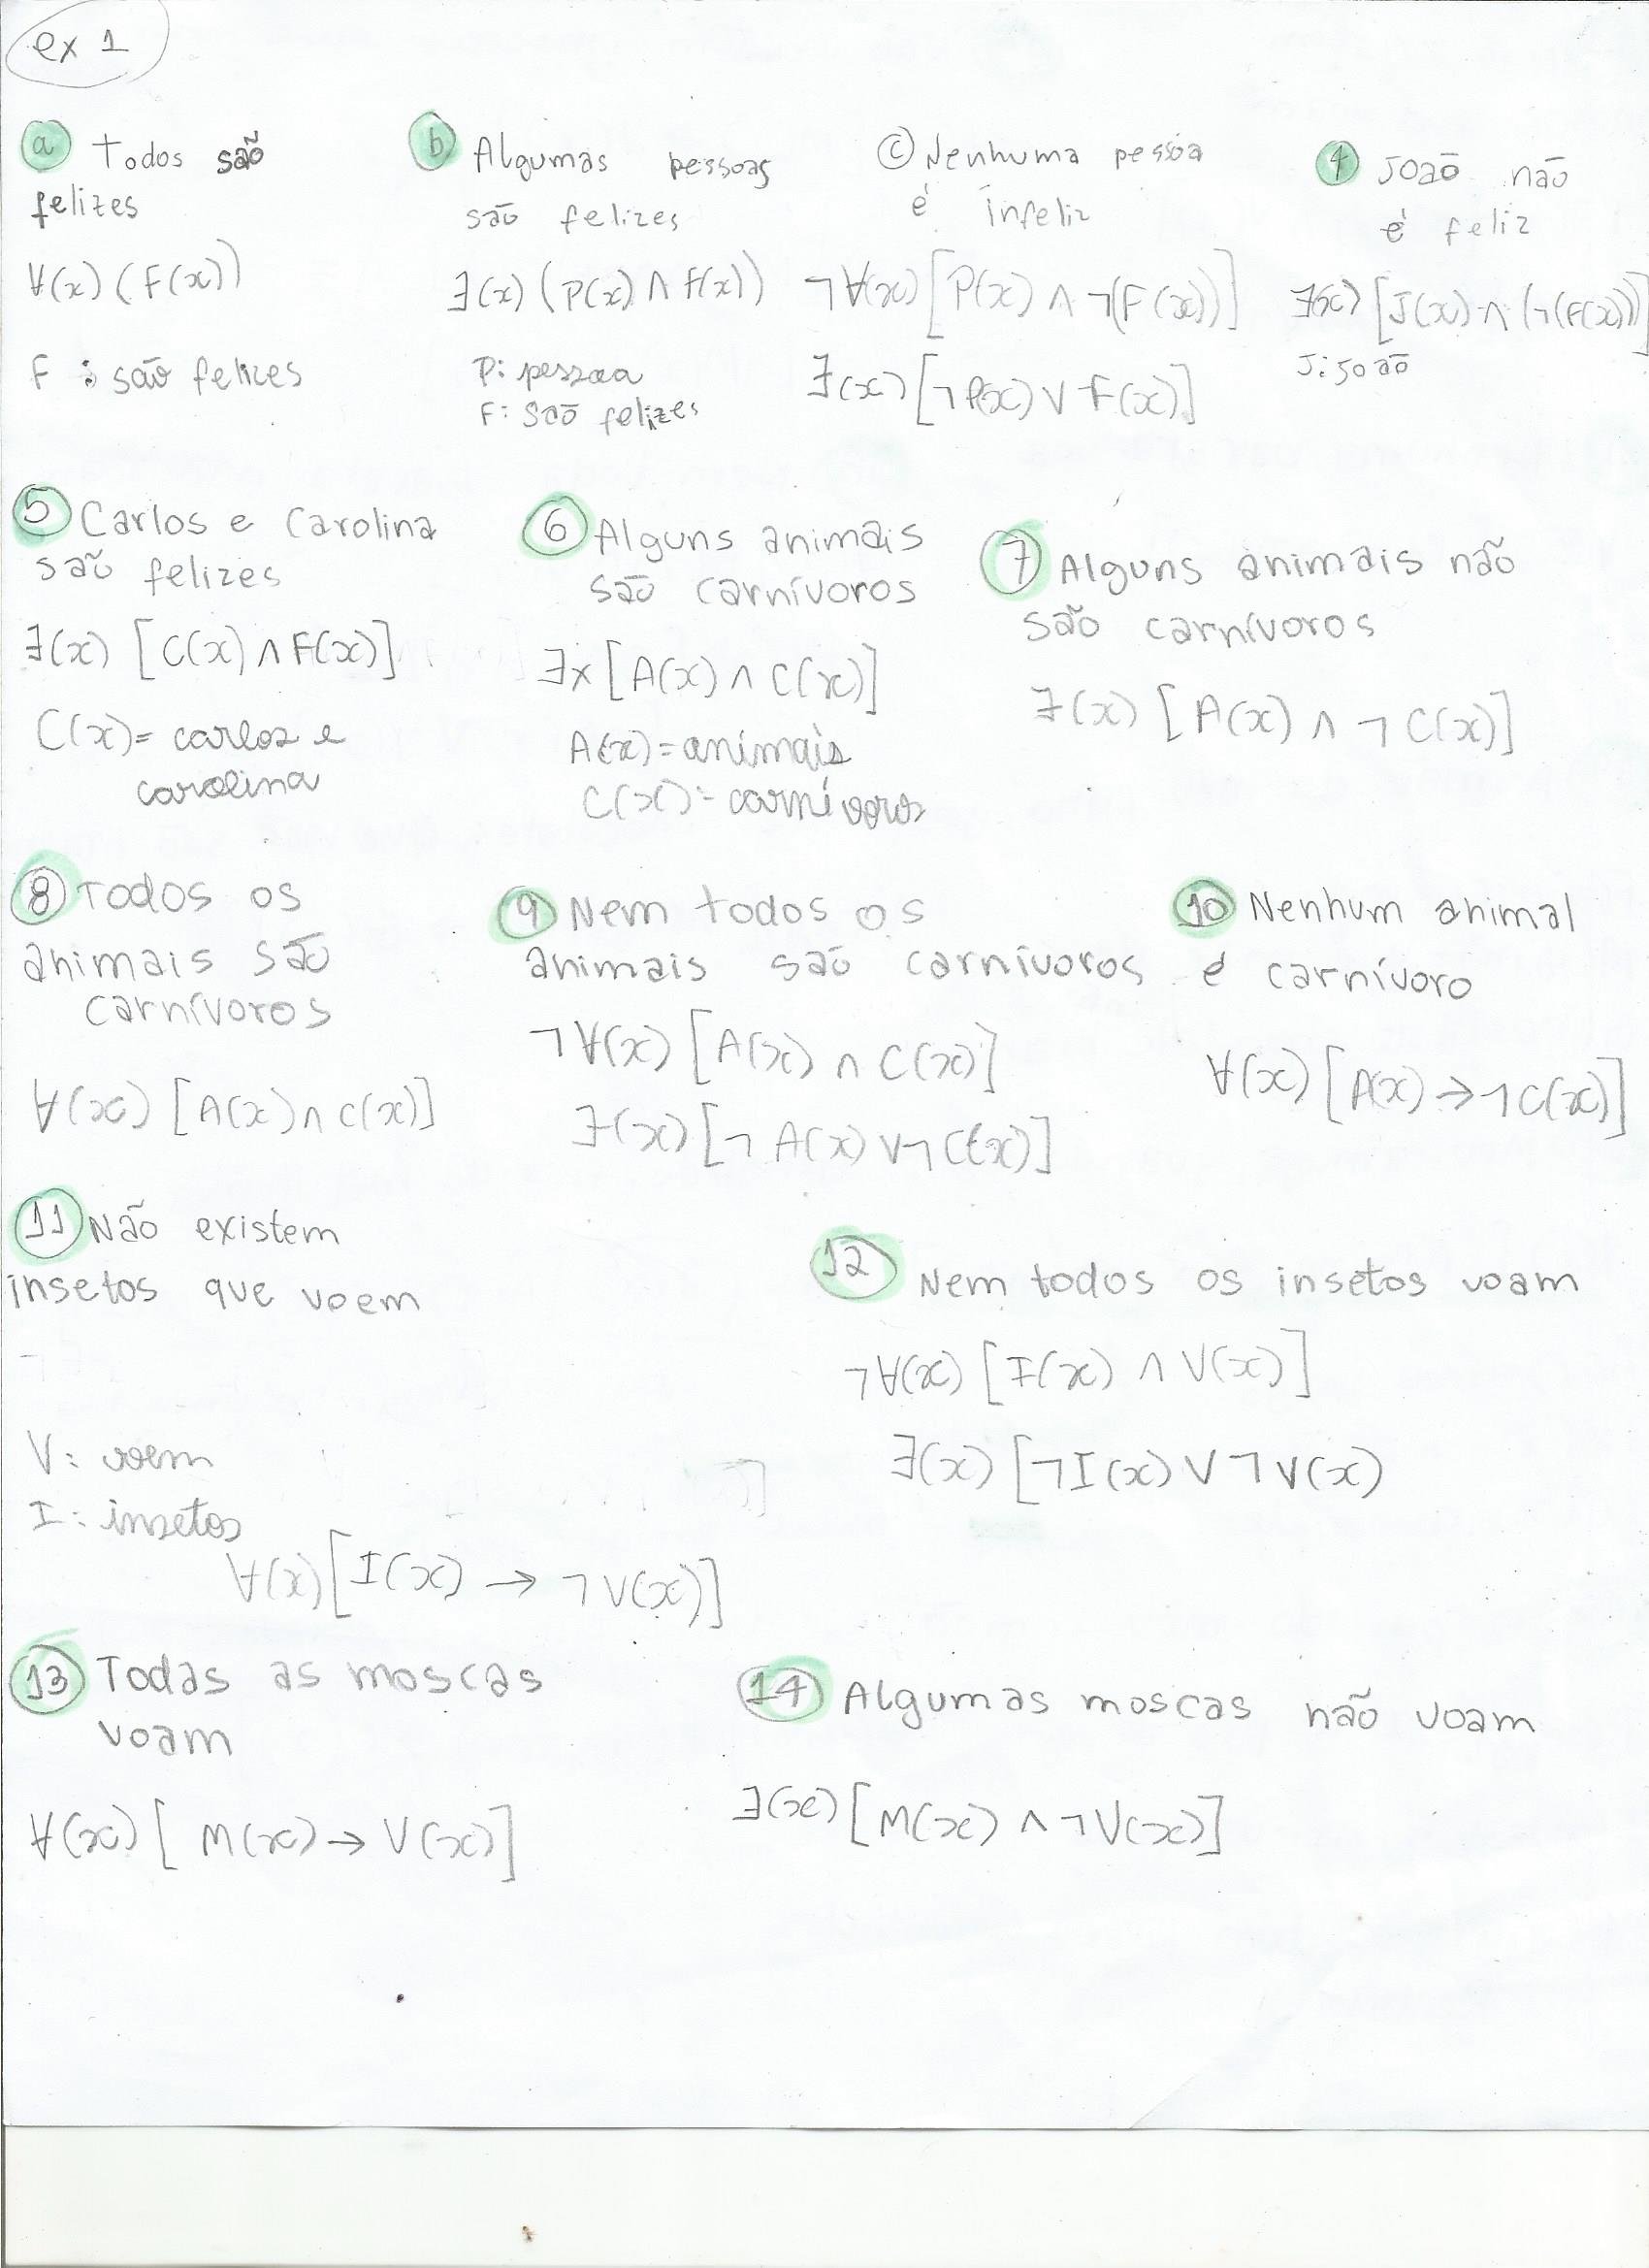 ex 1
a Todos são
felizes
∀(x) (F(x))
F : são felizes
b Algumas pessoas
são felizes
∃(x) (P(x) ∧ F(x))
P: pessoa
F: São felizes
c Nenhuma pessoa
é infeliz
¬∀(x) [P(x) ∧ ¬(F(x))]
∃(x) [¬P(x) ∨ F(x)]
4 João não
é feliz
∃(x) [J(x) ∧ (¬(F(x)))]
J: João
5 Carlos e Carolina
são felizes
∃(x) [C(x) ∧ F(x)]
C(x) = carlos e
carolina
6 Alguns animais
são carnívoros
∃x [A(x) ∧ C(x)]
A(x) = animais
C(x) = carnívoros
7 Alguns animais não
são carnívoros
∃(x) [A(x) ∧ ¬C(x)]
8 Todos os
animais são
carnívoros
∀(x) [A(x) ∧ C(x)]
9 Nem todos os
animais são carnívoros
¬∀(x) [A(x) ∧ C(x)]
∃(x) [¬A(x) ∨ ¬C(x)]
10 Nenhum animal
é carnívoro
∀(x) [A(x) → ¬C(x)]
11 Não existem
insetos que voem
V: voem
I: insetos
∀(x) [I(x) → ¬V(x)]
12 Nem todos os insetos voam
¬∀(x) [I(x) ∧ V(x)]
∃(x) [¬I(x) ∨ ¬V(x)
13 Todas as moscas
voam
∀(x) [M(x) → V(x)]
14 Algumas moscas não voam
∃(x) [M(x) ∧ ¬V(x)]